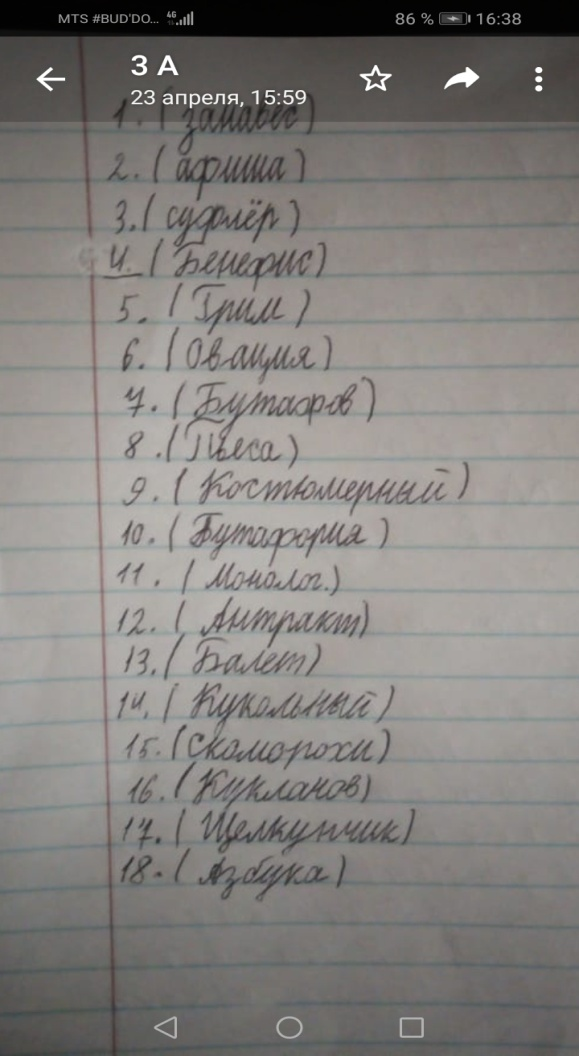 MTS #BUD'DO... 4G 86 % 16:38
3 А
23 апреля, 15:59
1. (занавес)
2. (афиша)
3. (суфлёр)
4. (Бенефис)
5. (Грим)
6. (Овация)
7. (Бутафов)
8. (Пьеса)
9. (Костюмерный)
10. (Бутафория)
11. (Монолог.)
12. (Антракт)
13. (Балет)
14. (Кукольный)
15. (Скоморохи)
16. (Кукланов)
17. (Щелкунчик)
18. (Азбука)